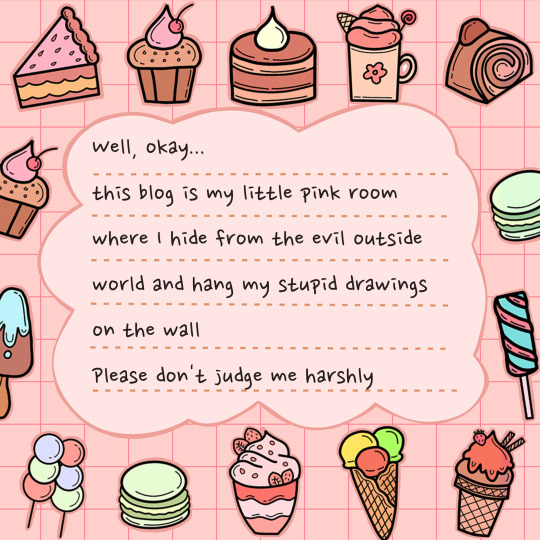 Well, okay...
this blog is my little pink room
where I hide from the evil outside
world and hang my stupid drawings
on the wall
Please don't judge me harshly